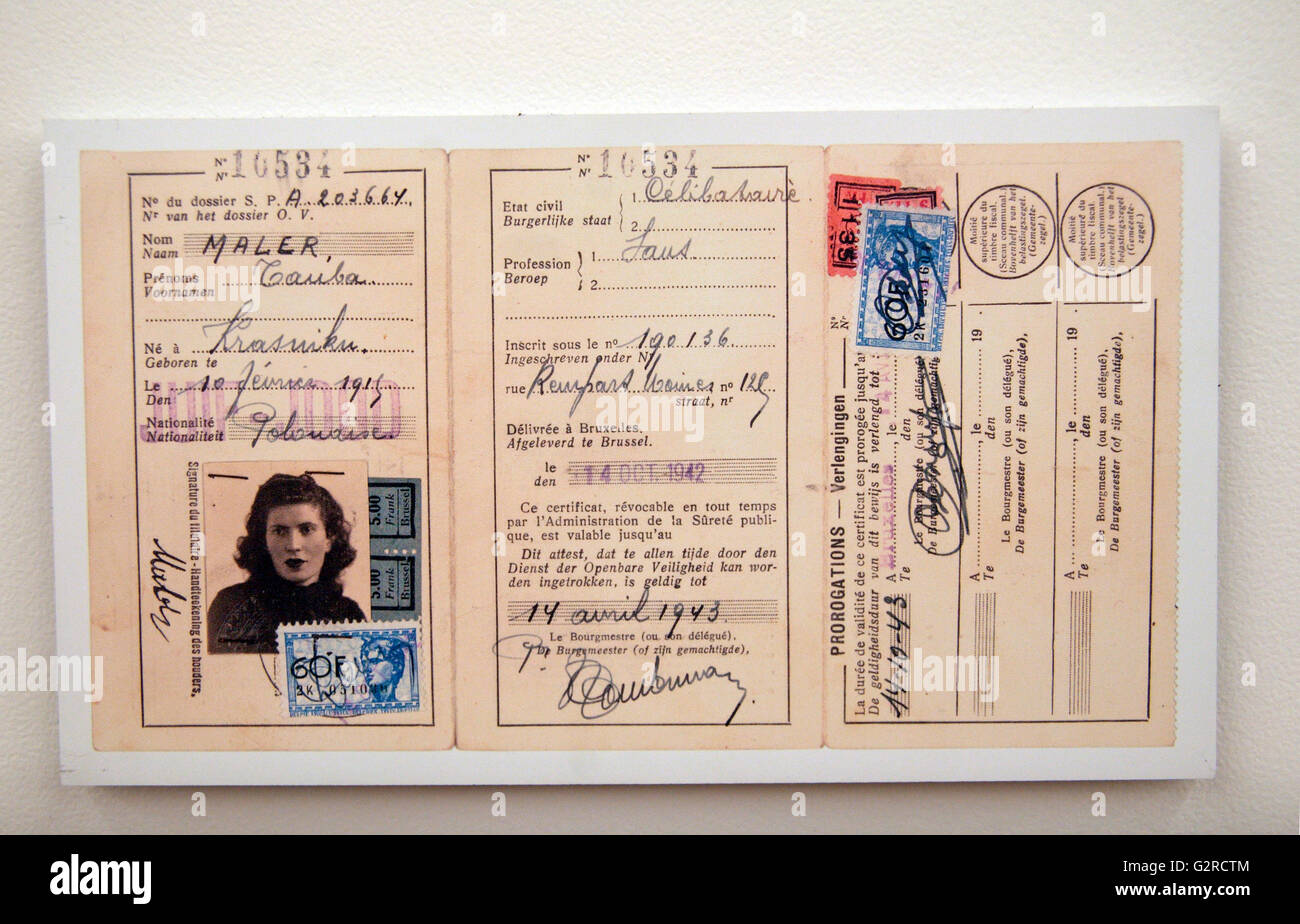 Nº
Nʳ 10534
Nº du dossier S. P. A 203664
Nʳ van het dossier O. V.
Nom
Naam MALER,
Prénoms
Voornamen Tauba
Né à Krasniku
Geboren te
Le 10 février 191
Den
Nationalité
Nationaliteit Polonaise.
Signature du titulaire - Handteekening des houders.
Maler
5.00 Frank Brussel
5.00 Frank Brussel
60F
2K
Nº
Nʳ 10534
Etat civil
Burgerlijke staat
1. Célibataire
2.
Profession
Beroep
1. Sans
2.
Inscrit sous le nº 190136
Ingeschreven onder Nʳ
rue Rempart Moines nº 125
straat, nʳ
Délivrée à Bruxelles,
Afgeleverd te Brussel.
le
den 14 OCT. 1942
Ce certificat, révocable en tout temps
par l'Administration de la Sûreté publi-
que, est valable jusqu'au
Dit attest, dat te allen tijde door den
Dienst der Openbare Veiligheid kan wor-
den ingetrokken, is geldig tot
14 avril 1943.
Le Bourgmestre (ou son délégué),
De Burgemeester (of zijn gemachtigde),
Nº
Nʳ
60F
PROROGATIONS — Verlengingen
La durée de validité de ce certificat est prorogée jusqu'au
De geldigheidsduur van dit bewijs is verlengd tot :
14-10-43
A
Te
Bruxelles
, le
Le Bourgmestre (ou son délégué)
De Burgemeester (of zijn gemachtigde)
A
Te
, le 19
den
Le Bourgmestre (ou son délégué),
De Burgemeester (of zijn gemachtigde),
A
Te
, le 19
den
Le Bourgmestre (ou son délégué),
De Burgemeester (of zijn gemachtigde),
Moitié
supérieure du
timbre fiscal.
(Sceau communal.)
Bovenhelft van het
belastingszegel.
(Gemeente-
zegel.)
Moitié
supérieure du
timbre fiscal.
(Sceau communal.)
Bovenhelft van het
belastingszegel.
(Gemeente-
zegel.)
alamy
Image ID: G2RCTM
www.alamy.com